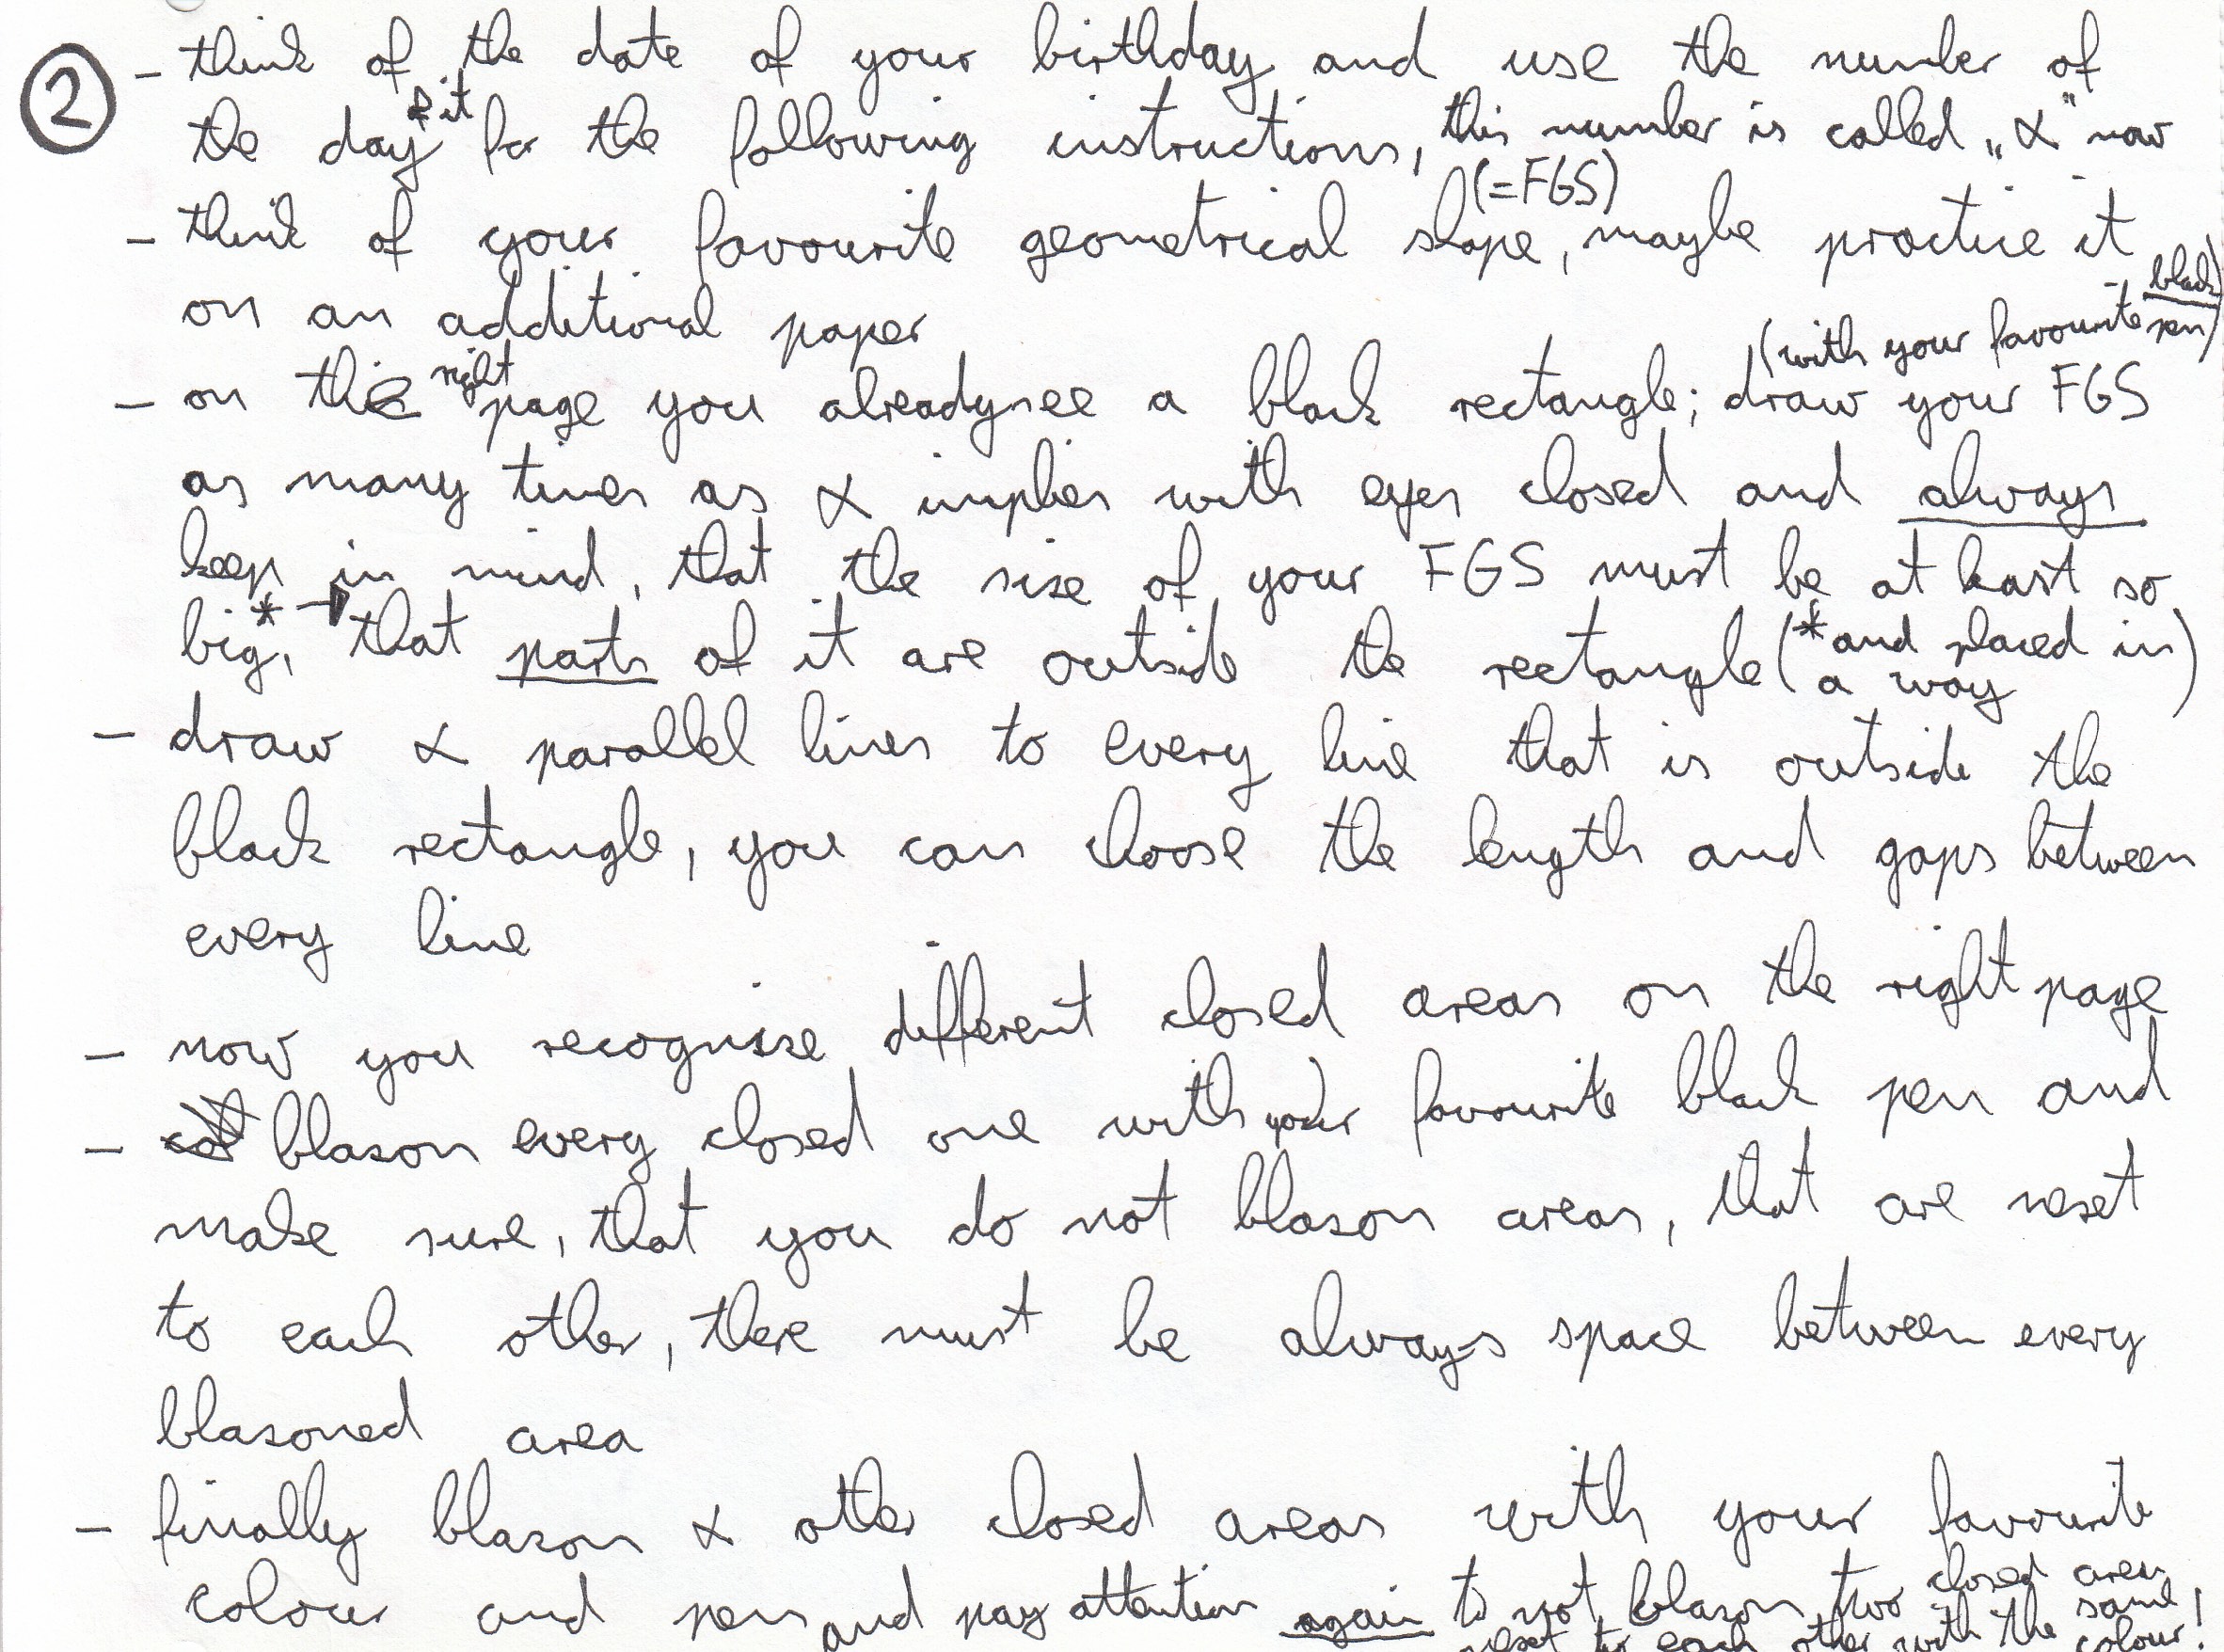 ② – think of the date of your birthday and use the number of
the day of it for the following instructions, this number is called „x" now
– think of your favourite geometrical shape (=FGS), maybe practice it
on an additional paper
– on the right page you already see a black rectangle; draw your FGS (with your favourite black pen)
as many times as x implies with eyes closed and always
keep in mind, that the size of your FGS must be at least so
big,* that parts of it are outside the rectangle (*and placed in a way)
– draw x parallel lines to every line that is outside the
black rectangle, you can choose the length and gaps between
every line
– now you recognise different closed areas on the right page
– blason every closed one with your favourite black pen and
make sure, that you do not blason areas, that are next
to each other, there must be always space between every
blasoned area
– finally blason x other closed areas with your favourite
colour and pen and pay attention again to not blason two closed areas
next to each other with the same colour!